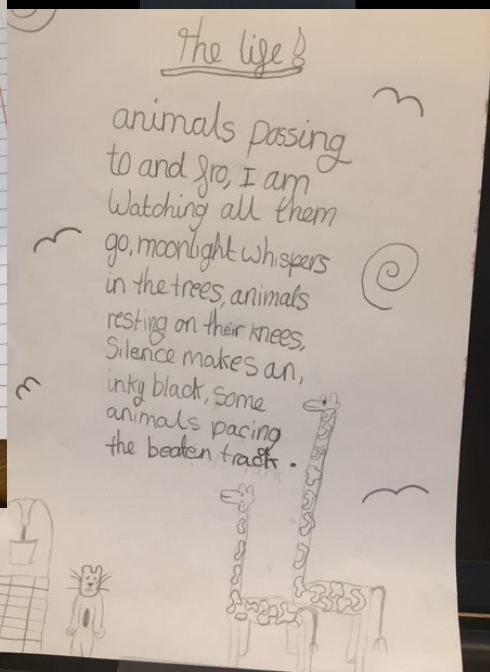 The life!
animals passing
to and fro, I am
Watching all them
go, moonlight whispers
in the trees, animals
resting on their knees,
Silence makes an,
inky black, some
animals pacing
the beaten track.